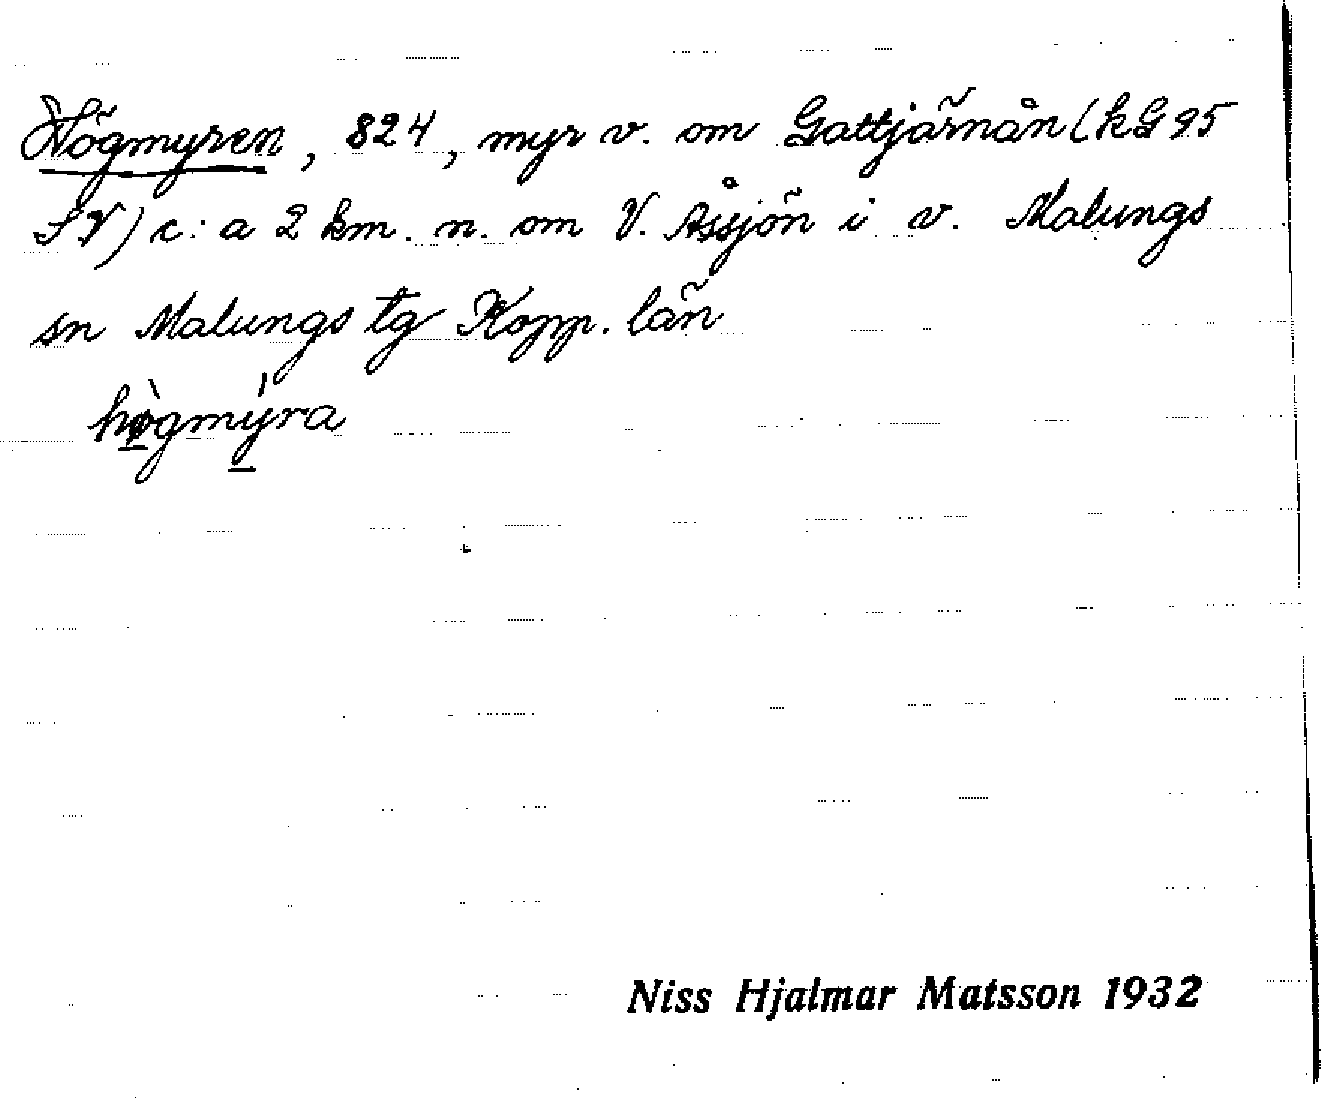 Högmyren, 824, myr v. om Gattjärnån (kG 95
SV) c:a 2 km. n. om V. Åssjön i v. Malungs
sn Malungs tg Kopp. län
hø̀gmýra
Niss Hjalmar Matsson 1932